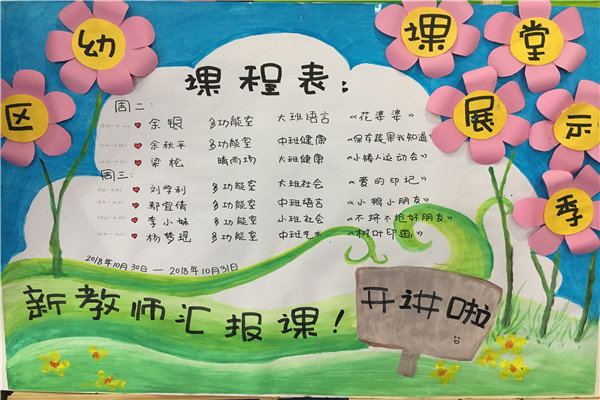 区幼课堂展示季
课程表:
周二:
余银 多功能室 大班语言 《花婆婆》
余秋平 多功能室 中班健康 《保存蔬果我知道》
梁枪 晴雨场 大班健康 《小矮人运动会》
周三:
刘学利 多功能室 大班社会 《爱的印记》
邹宜倩 多功能室 中班语言 《小鸭小朋友》
李小妹 多功能室 小班社会 《不拼不抢好朋友》
杨梦瑶 多功能室 中班艺术 《树叶印画》
2018年10月30日—2018年10月31日
新教师汇报课!
开讲啦